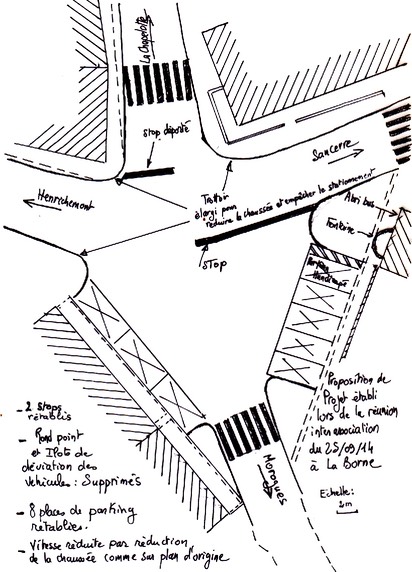 La Chapelotte
Stop déporté
Sancerre
Henrichemont
Trottoir
élargi pour
réduire la chaussée et empêcher le stationnement
Abri bus
Fontaine
STOP
Parking
Handicapé
Morogues
- 2 stops
rétablis
- Rond point
et Ilots de
déviation des
véhicules : Supprimés
- 8 places de parking
rétablies.
- Vitesse réduite par réduction
de la chaussée comme sur plan d'origine
Proposition de
Projet établi
lors de la réunion
inter association
du 25/09/14
à La Borne
Echelle:
2m